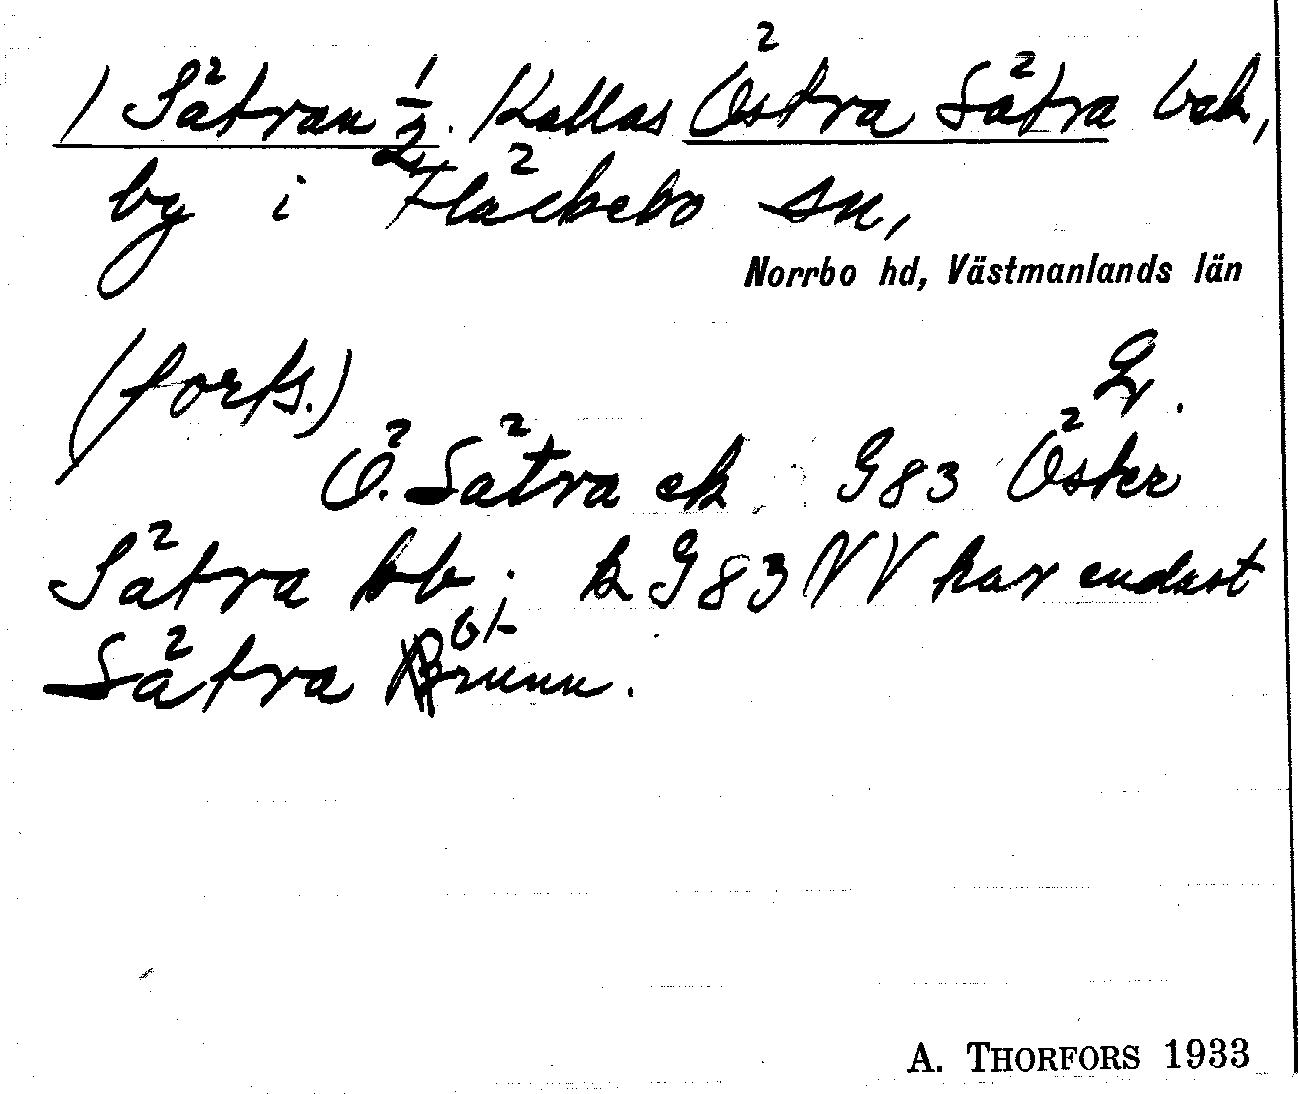 1 Sätran ½. Kallas Östra Sätra bak,
by i Fläckebo sn,
Norrbo hd, Västmanlands län
(forts.) 2.
Ö. Sätra ek G83 Öster
Sätra bb; k G83 NV har endast
Sätra Brunn.
A. THORFORS 1933